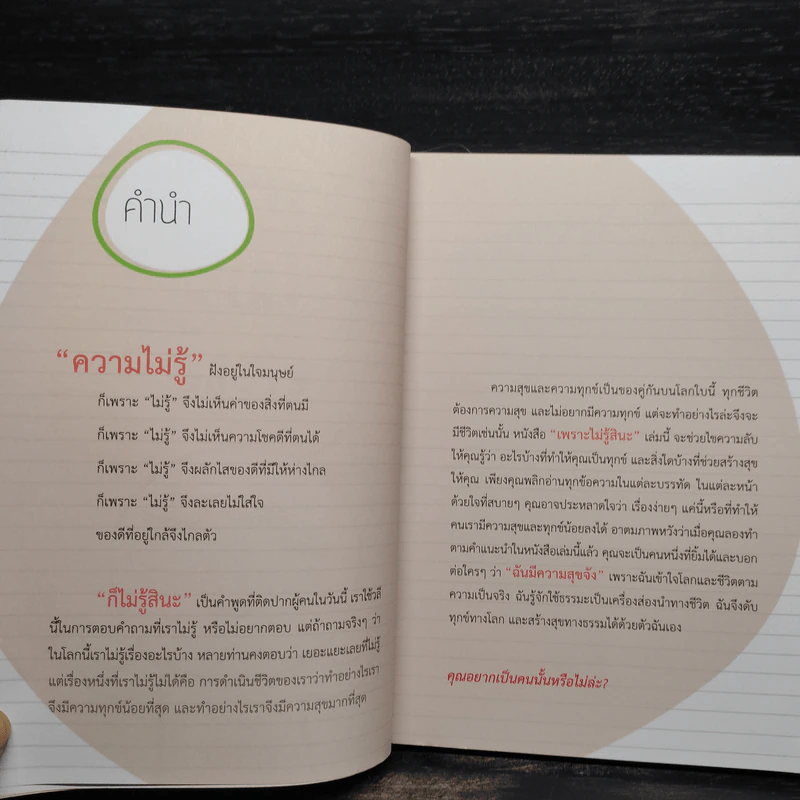 คำนำ
“ความไม่รู้” ฝังอยู่ในใจมนุษย์
ก็เพราะ “ไม่รู้” จึงไม่เห็นค่าของสิ่งที่ตนมี
ก็เพราะ “ไม่รู้” จึงไม่เห็นความโชคดีที่ตนได้
ก็เพราะ “ไม่รู้” จึงผลักไสของดีที่มีให้ห่างไกล
ก็เพราะ “ไม่รู้” จึงละเลยไม่ใส่ใจ
ของดีที่อยู่ใกล้จึงไกลตัว
“ก็ไม่รู้สินะ” เป็นคำพูดที่ติดปากผู้คนในวันนี้ เราใช้วลี
นี้ในการตอบคำถามที่เราไม่รู้ หรือไม่อยากตอบ แต่ถ้าถามจริงๆ ว่า
ในโลกนี้เราไม่รู้เรื่องอะไรบ้าง หลายท่านคงตอบว่า เยอะแยะเลยที่ไม่รู้
แต่เรื่องหนึ่งที่เราไม่รู้ไม่ได้คือ การดำเนินชีวิตของเราว่าทำอย่างไรเรา
จึงมีความทุกข์น้อยที่สุด และทำอย่างไรเราจึงมีความสุขมากที่สุด
ความสุขและความทุกข์เป็นของคู่กันบนโลกใบนี้ ทุกชีวิต
ต้องการความสุข และไม่อยากมีความทุกข์ แต่จะทำอย่างไรล่ะจึงจะ
มีชีวิตเช่นนั้น หนังสือ “เพราะไม่รู้สินะ” เล่มนี้ จะช่วยไขความลับ
ให้คุณรู้ว่า อะไรบ้างที่ทำให้คุณเป็นทุกข์ และสิ่งใดบ้างที่ช่วยสร้างสุข
ให้คุณ เพียงคุณพลิกอ่านทุกข้อความในแต่ละบรรทัด ในแต่ละหน้า
ด้วยใจที่สบายๆ คุณอาจประหลาดใจว่า เรื่องง่ายๆ แค่นี้หรือที่ทำให้
คนเรามีความสุขและทุกข์น้อยลงได้ อาตมภาพหวังว่าเมื่อคุณลองทำ
ตามคำแนะนำในหนังสือเล่มนี้แล้ว คุณจะเป็นคนหนึ่งที่ยิ้มได้และบอก
ต่อใครๆ ว่า “ฉันมีความสุขจัง” เพราะฉันเข้าใจโลกและชีวิตตาม
ความเป็นจริง ฉันรู้จักใช้ธรรมะเป็นเครื่องส่องนำทางชีวิต ฉันจึงดับ
ทุกข์ทางโลก และสร้างสุขทางธรรมได้ด้วยตัวฉันเอง
คุณอยากเป็นคนนั้นหรือไม่ล่ะ?